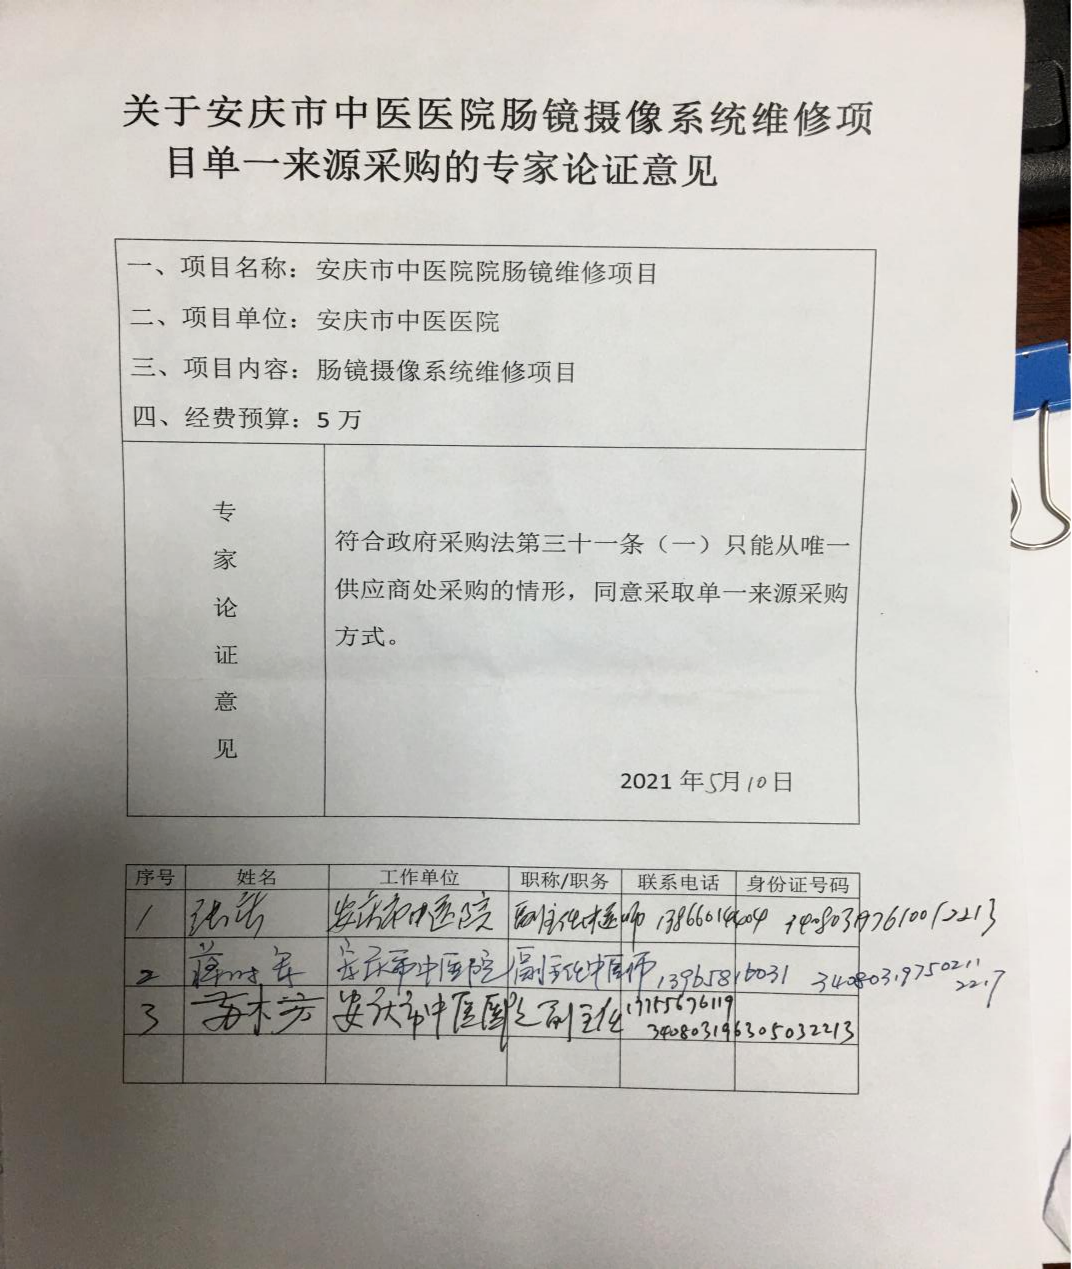 关于安庆市中医医院肠镜摄像系统维修项
目单一来源采购的专家论证意见
一、项目名称：安庆市中医院院肠镜维修项目
二、项目单位：安庆市中医医院
三、项目内容：肠镜摄像系统维修项目
四、经费预算：5 万
专
家
论
证
意
见
符合政府采购法第三十一条（一）只能从唯一
供应商处采购的情形，同意采取单一来源采购
方式。
2021 年5月10日
序号 姓名 工作单位 职称/职务 联系电话 身份证号码
1 安庆市中医医院
2 安庆市中医院 副主任中医师 13965816031
3 安庆市中医医院 副主任 13155676119
340803196305032213